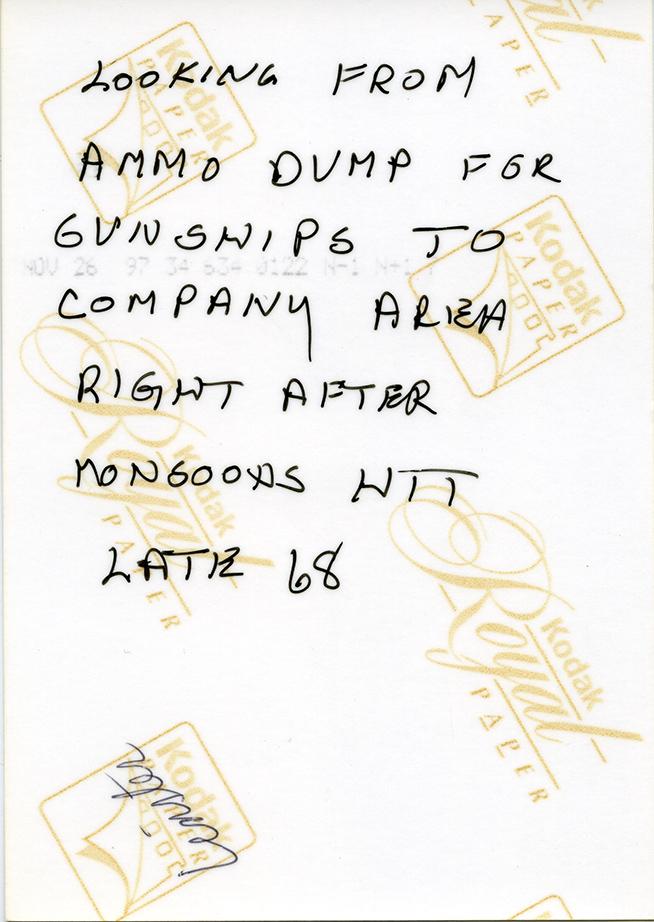 LOOKING FROM
AMMO DUMP FOR
GUNSHIPS TO
NOV 26 97 34 634 0122 N-1 N+1
COMPANY AREA
RIGHT AFTER
HIT
LATE 68
Kodak
PAPER
Royal
PAPER
Kodak
PAPER
Royal
Kodak
PAPER
Royal
Kodak
PAPER
Kodak
PAPER